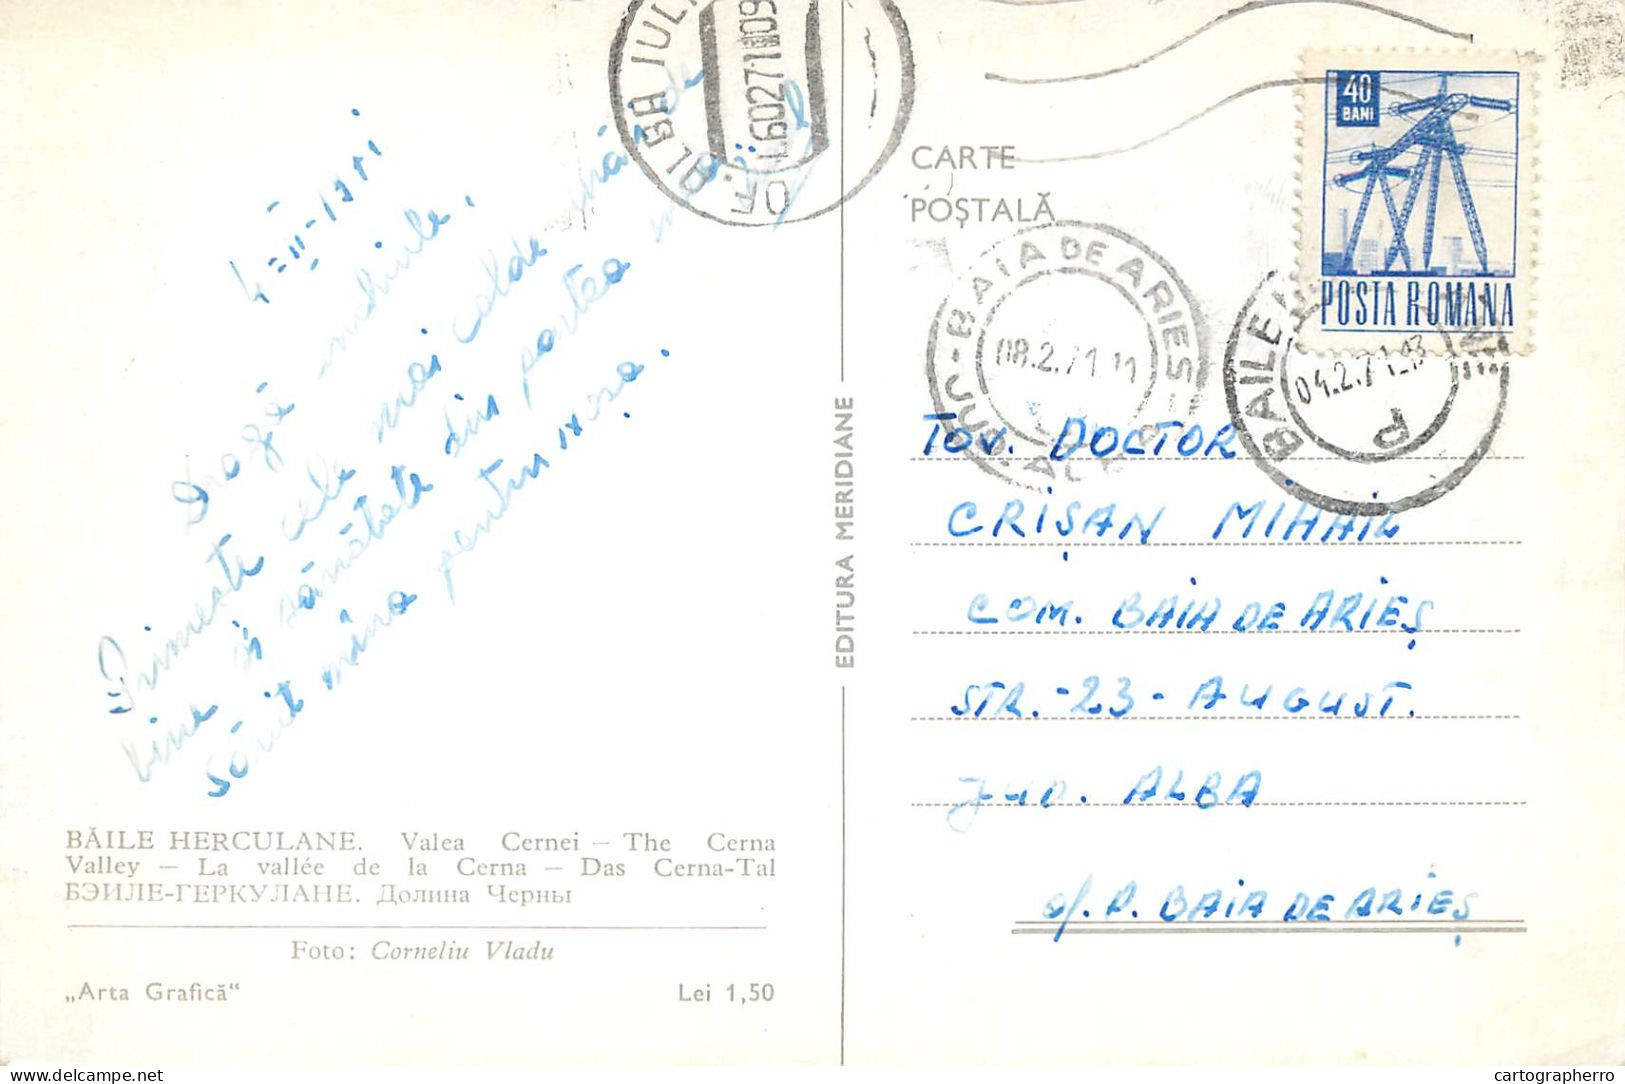 4-II-1971
Dragă unchiule,
Primește cele mai calde
bine și sănătate din partea
Sărut mâna pentru
BĂILE HERCULANE. Valea Cernei – The Cerna
Valley – La vallée de la Cerna – Das Cerna-Tal
БЭИЛЕ-ГЕРКУЛАНЕ. Долина Черны
Foto: Corneliu Vladu
„Arta Grafică“
Lei 1,50
EDITURA MERIDIANE
OF. ALBA IULI
CARTE
POȘTALĂ
40
BANI
POSTA ROMANA
BAIA DE ARIES
08.2.71.11
BAILE
04.2.71
Tov. DOCTOR
CRIȘAN MIHAIL
COM. BAIA DE ARIEȘ
STR.-23-AUGUST.
JUD. ALBA
of. P. BAIA DE ARIEȘ
cartographerro